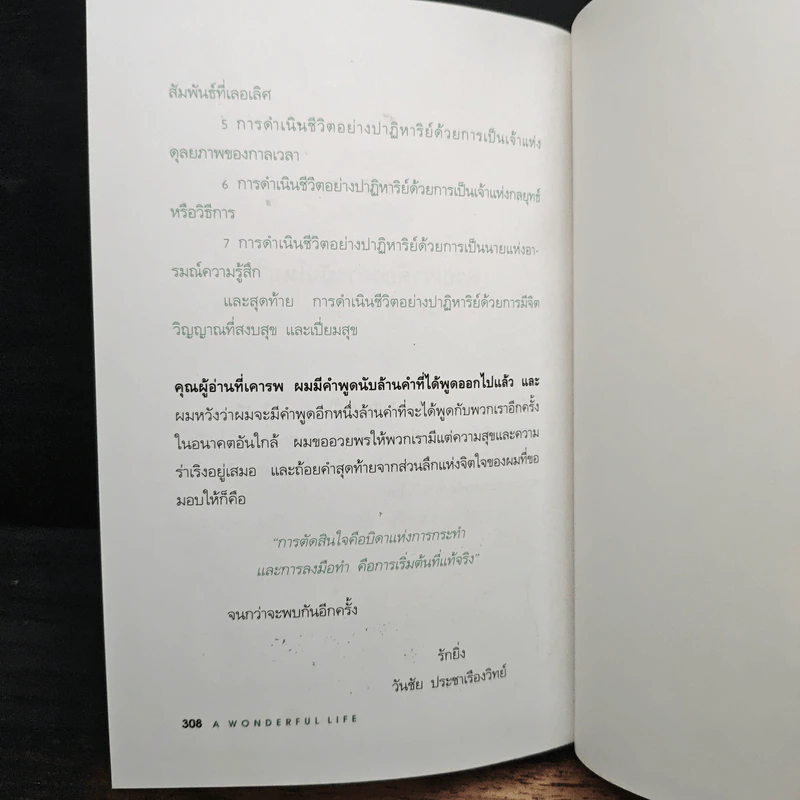 สัมพันธ์ที่เลอเลิศ
5 การดำเนินชีวิตอย่างปาฏิหาริย์ด้วยการเป็นเจ้าแห่ง
ดุลยภาพของกาลเวลา
6 การดำเนินชีวิตอย่างปาฏิหาริย์ด้วยการเป็นเจ้าแห่งกลยุทธ์
หรือวิธีการ
7 การดำเนินชีวิตอย่างปาฏิหาริย์ด้วยการเป็นนายแห่งอา-
รมณ์ความรู้สึก
และสุดท้าย การดำเนินชีวิตอย่างปาฏิหาริย์ด้วยการมีจิต
วิญญาณที่สงบสุข และเปี่ยมสุข
คุณผู้อ่านที่เคารพ ผมมีคำพูดนับล้านคำที่ได้พูดออกไปแล้ว และ
ผมหวังว่าผมจะมีคำพูดอีกหนึ่งล้านคำที่จะได้พูดกับพวกเราอีกครั้ง
ในอนาคตอันใกล้ ผมขออวยพรให้พวกเรามีแต่ความสุขและความ
ร่าเริงอยู่เสมอ และถ้อยคำสุดท้ายจากส่วนลึกแห่งจิตใจของผมที่ขอ
มอบให้ก็คือ
"การตัดสินใจคือบิดาแห่งการกระทำ
และการลงมือทำ คือการเริ่มต้นที่แท้จริง"
จนกว่าจะพบกันอีกครั้ง
รักยิ่ง
วันชัย ประชาเรืองวิทย์
308 A WONDERFUL LIFE